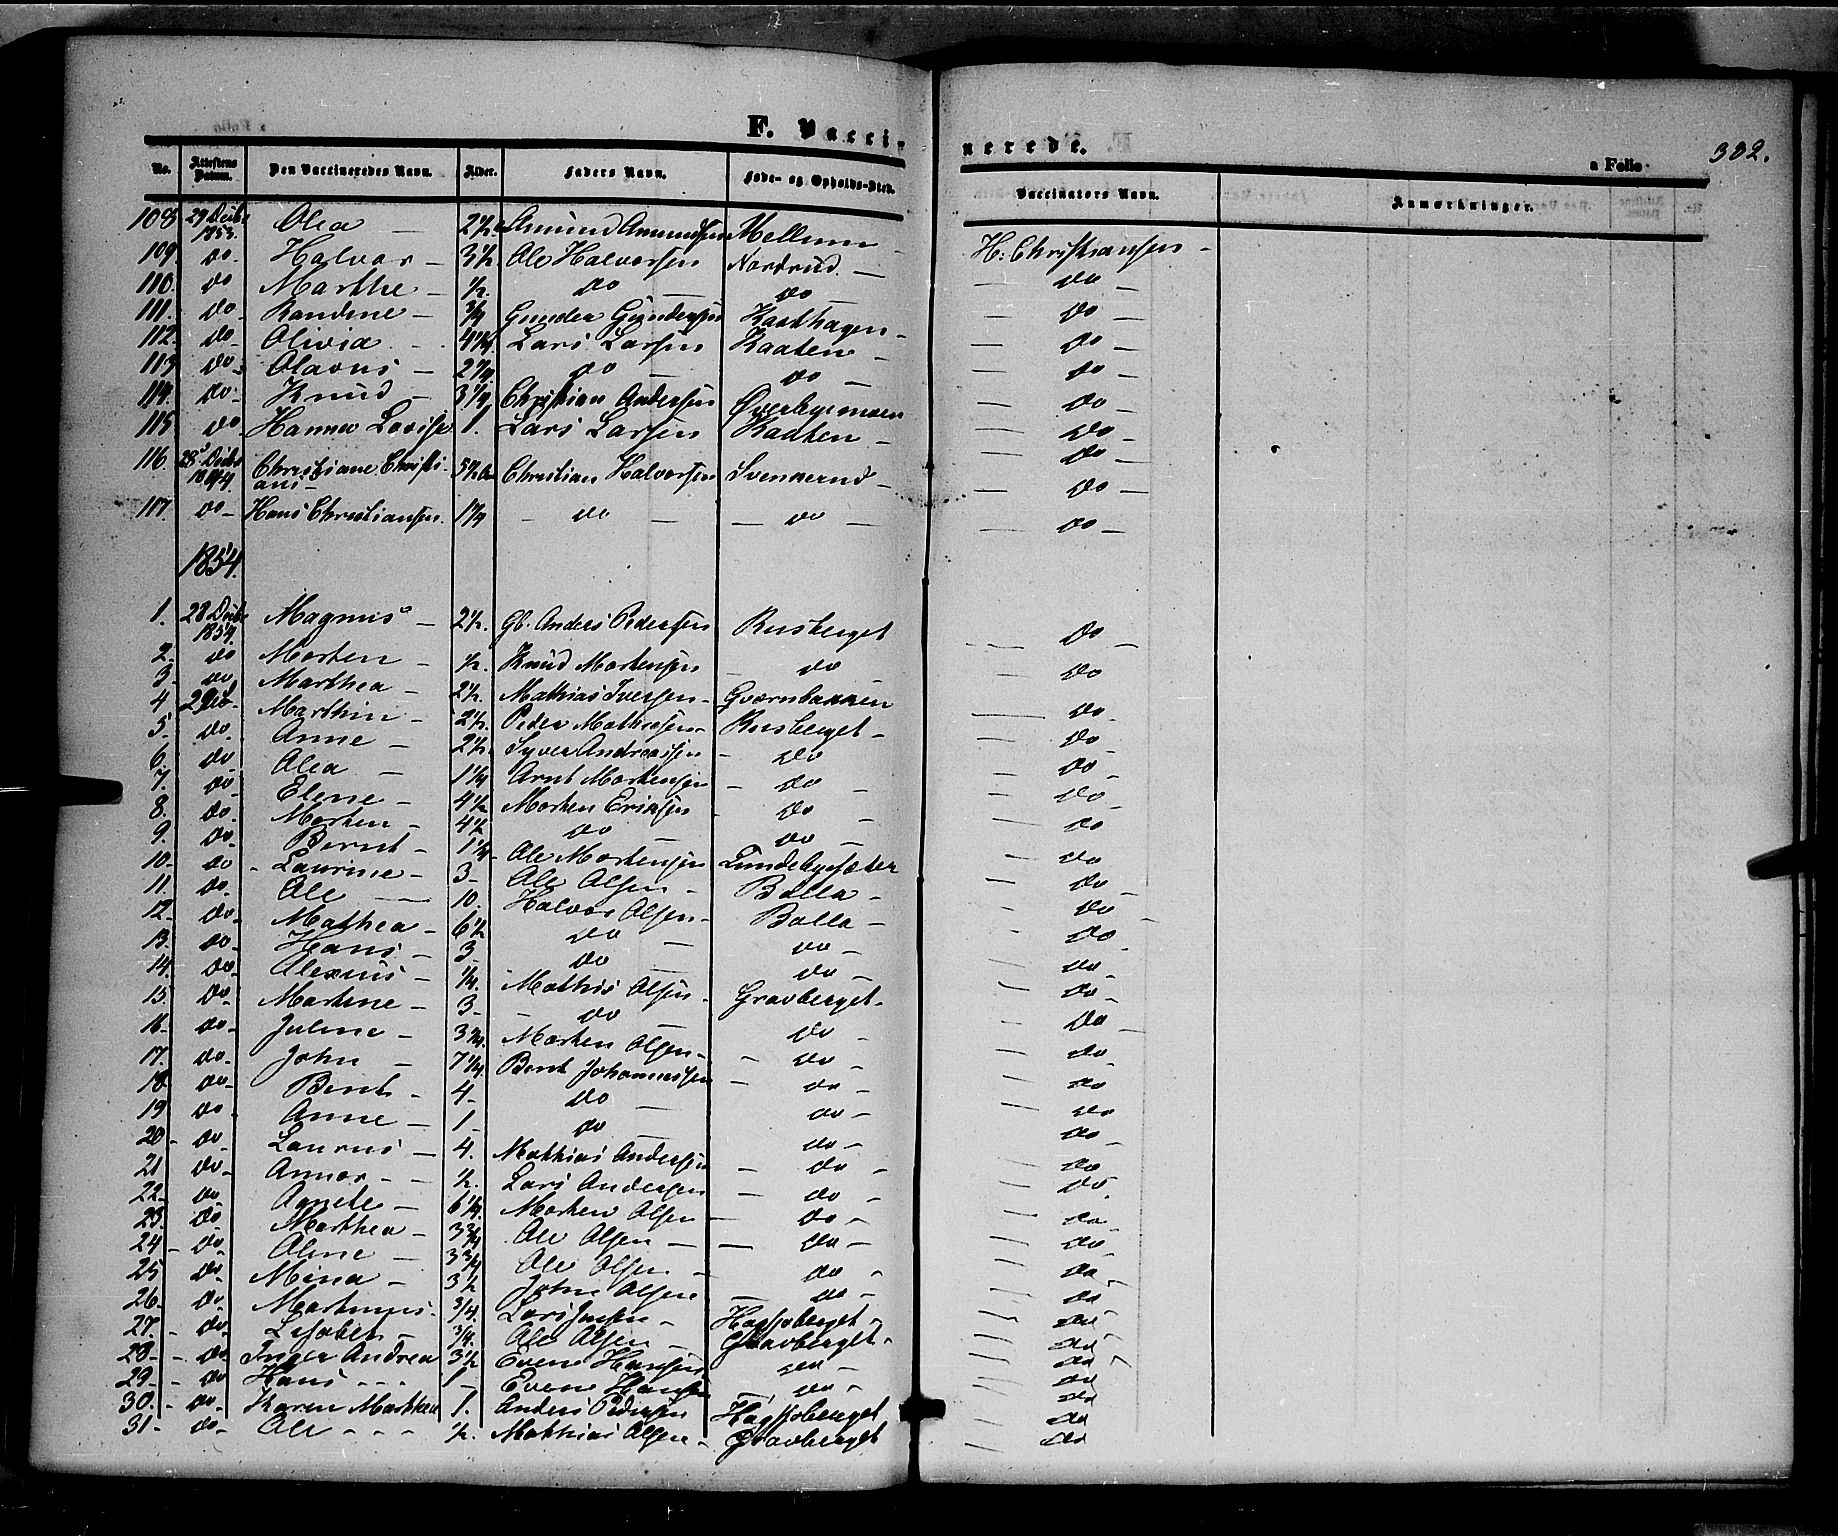 F. Vaccinerede.
a Folio 302.
No. Attestens Datum. Den Vaccineredes Navn. Alder. Faders Navn. Føde- og Opholds-Sted. Vaccinators Navn. Anmærkninger.
108 29 Decbr 1853. Olea 2 1/2 Amund Amundsen Mellum H. Christiansen
109 do Halvor 3 1/2 Ole Halvorsen Nordrud do
110. do Marthe 1/2. do do do
111. do Randine 3/4 Gunder Gundersen Kaathagen do
112. do Olivia 4 1/4 Lars Larsen Kaaten do
113 do Olavus do do do
114. do Knud 3 1/4 Christian Andersen Øverbymoen do
115 do Hanna Lovise 1. Lars Larsen Kaaten do
116. 28 Decbr Christiane Christians 5 1/2 Christian Halvorsen Svenkerud do
117. do Hans Christiansen 1 do do do
1854.
1. 28 Decbr 1854. Magnus 2 1/2. Gb. Anders Pedersen Rusberget do
2. do Morten 1/2. Knud Mortensen do do
3. do Marthea 2 1/2. Mathias Iversen Gværnbakken do
4 Marthin 2 1/2. Peder Mathisen Rusberget do
5. do. Anne 2 1/2. Syver Andreassen do do
6. do Olea 1 1/4 Arnt Mortensen do do
7. do Elene 4 1/2 Morten Eriksen do do
8. do. Morten 4 1/2 do do do
9. do. Bernt 1 1/4 Ole Mortensen Lundebysæter do
10. do Laurine 3 Ole Olsen Bolla do
11. do Ole 10. Halvor Olsen Bolla do
12. do Mathea 6 1/2 do do do
13. do Hans 3 do do do
14. do. Alexius 1/4. Mathis Olsen Gravberget do
15. do Martine 3 do do do
16. do. Juline 3 3/4. Morten Olsen do do
17. do John 7 1/4 Bernt Johannessen do do
18. do Bernt 4 do do do
19 do Anne 1 do do do
20 do. Laurus 4. Mathias Andersen do do
21 do Annar 1/2. Lars Andersen do do
22. do Agnete 6 1/4. Morten Olsen do do
23. do Marthea 3 3/4 Ole Olsen do do
24 do Oline 3 3/4 Ole Olsen do do
25 do Mina 3 1/2 John Olsen do do
26. do Martinus 3/4. Lars Jensen Hagsberget do
27. do Lisabet 3/4. Ole Olsen Gravberget do
28 do Inger Andrea 3 1/2 Evene Hansen do do
29 do Hans 1 Evene Hansen do do
30. do Karen Marthea 1. Anders Pedersen Hagsberget do
31 do Ole 1/2. Mathias Olsen Gravberget do